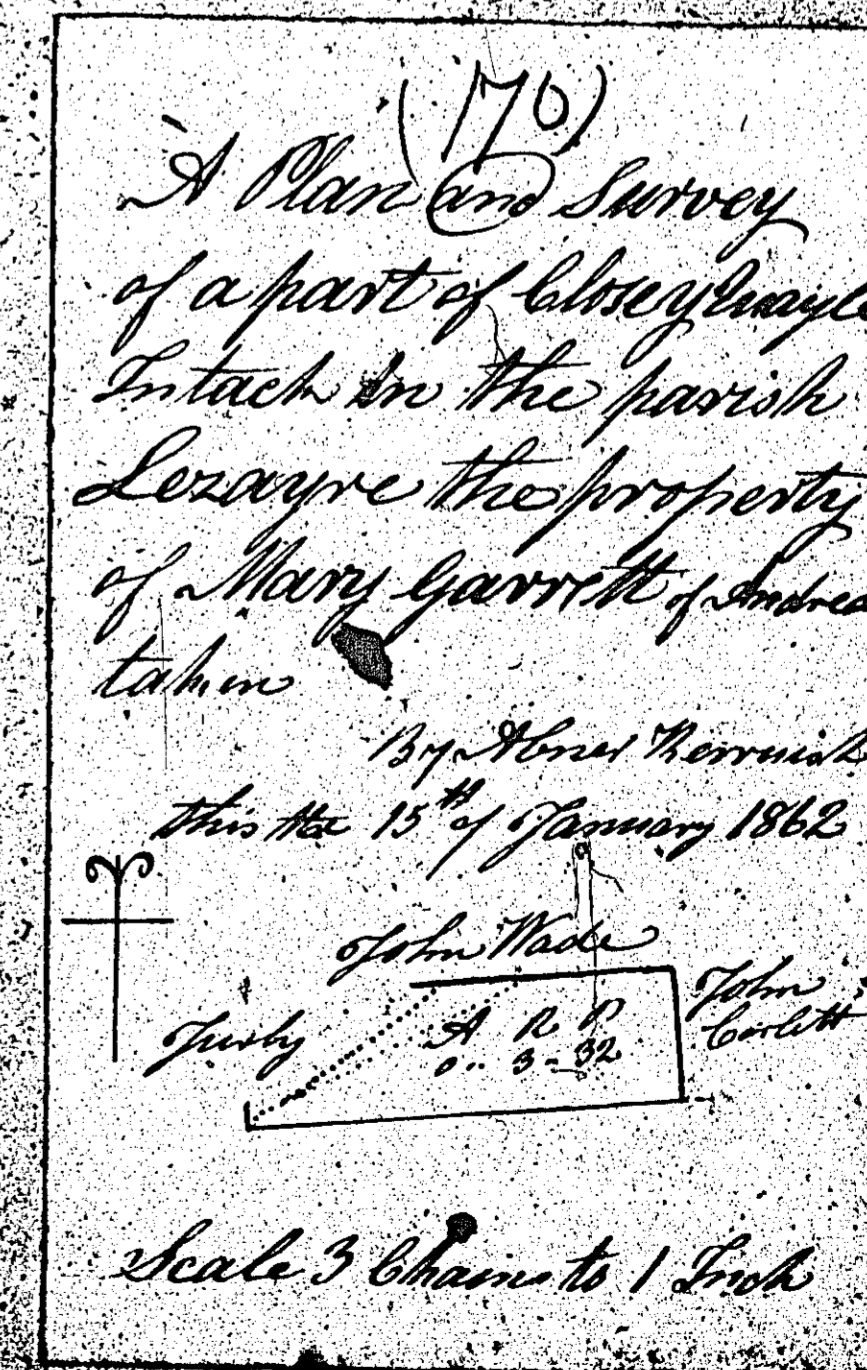 (170)
A Plan and Survey
of a part of
Intack in the parish
Lezayre the property
of Mary Garrett of Andrea
taken
By Abner Kerruish
this the 15th of January 1862
John Wade
Jurby
A R P
0.. 3 - 32
John
Corlett
Scale 3 Chains to 1 Inch